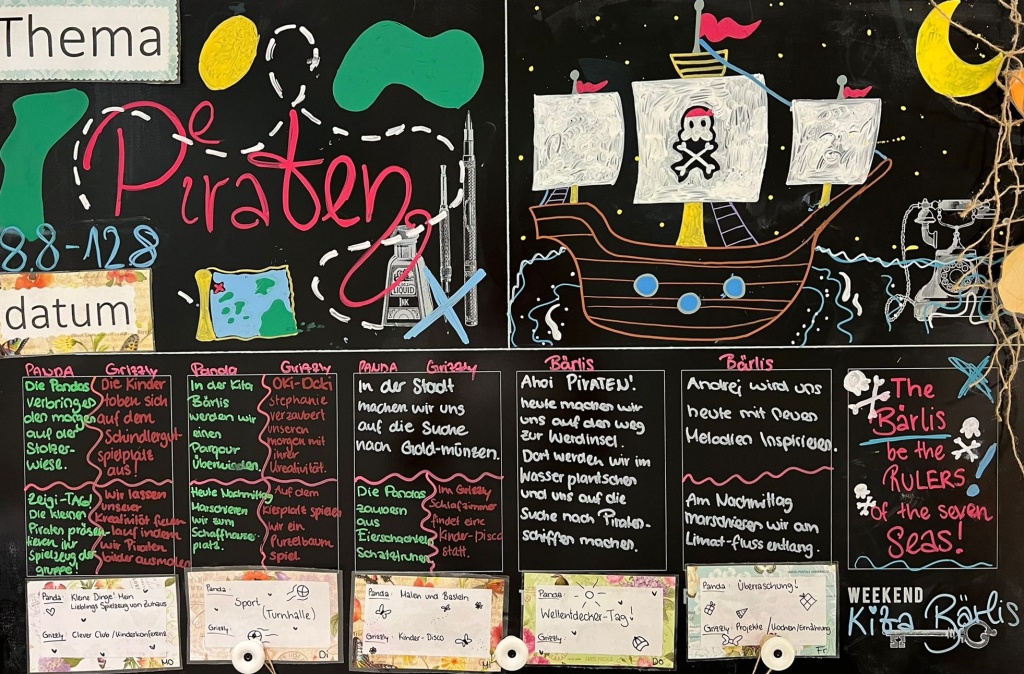 Thema
Die
Piraten
8.8-12.8
datum
LIQUID
INK
PANDA
Grizzly
Die Pandas
verbringen
den morgen
auf der
Stolzer-
wiese.
Die Kinder
toben sich
auf dem
Schindlergut-
spielplatz
aus!
Zeigi-TAG!
Die kleinen
Piraten präsen-
tieren ihr
Spielzeug der
gruppe!
Wir lassen
unserer
Kreativität freien
lauf indem
wir Piraten
bilder ausmalen
Panda
Grizzly
In der Kita
Bärlis
werden wir
einen
Pargour
Überwinden.
Oki-Doki
Stephanie
verzaubert
unseren
morgen mit
ihrer
Kreativität.
Heute Nachmittag
Marschieren
wir zum
Schaffhauser-
platz.
Auf dem
Kierplatz spielen
wir ein
Purzelbaum
spiel
PANDA
Grizzly
In der Stadt
machen wir uns
auf die Suche
nach Gold-münzen.
Die Pandas
zaubern
aus
Eierschachteln
Schatztruhen
Im Grizzly
Schlafzimmer
findet eine
Kinder-Disco
statt.
Bärlis
Ahoi PIRATEN!
heute machen wir
uns auf den weg
zur Werdinsel.
Dort werden wir im
Wasser plantschen
und uns auf die
Suche nach Piraten-
schiffen machen.
Bärlis
Andrej wird uns
heute mit neuen
Melodien Inspirieren.
Am Nachmittag
marschieren wir am
Limat-fluss entlang.
The
Bärlis
be the
RULERS
of the seven
Seas!
Panda: Kleine Dinge! Mein
Lieblings Spielzeug von Zuhaus
Grizzly: Clever Club /Kinderkonferenz
Mo
Panda:
Sport
(Turnhalle)
Grizzly:
Di
Panda: Malen und Basteln
Grizzly: Kinder-Disco
Mi
Panda:
Weltentdecker-Tag!
Grizzly:
Do
Panda: Überraschung!
Grizzly: Projekte /Kochen/Ernährung
Fr
WEEKEND
Kita Bärlis